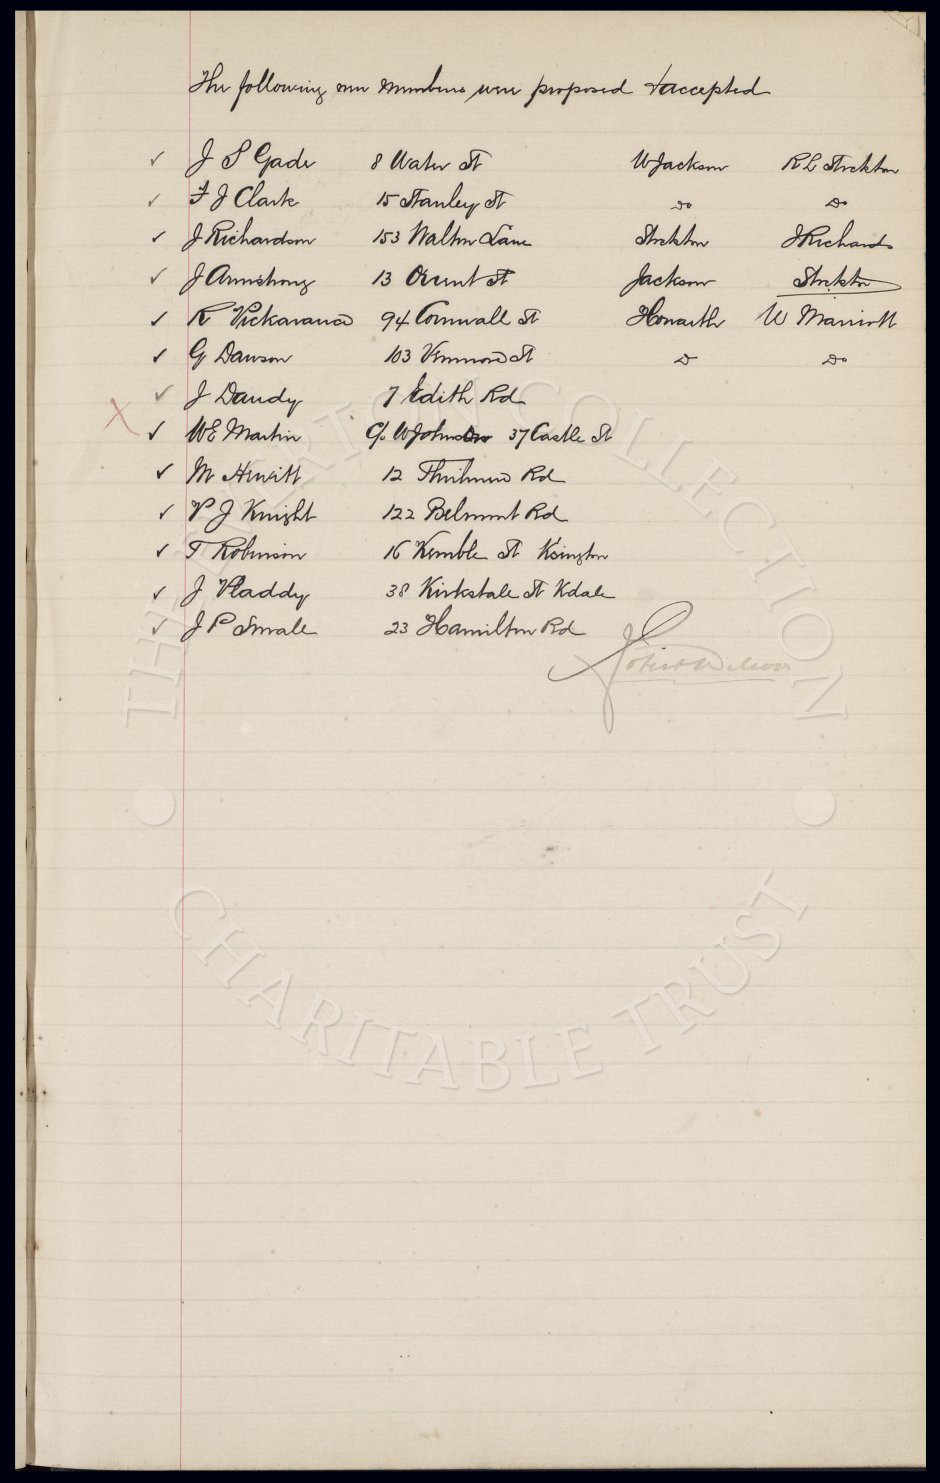 The following new members were proposed & accepted
✓ J S Gade 8 Water St W Jackson R L Stockton
✓ F J Clark 15 Stanley St Do Do
✓ J Richardson 153 Walton Lane Stockton J Richards
✓ J Armstrong 13 Orient St Jackson Stockton
✓ R Vickavance 94 Cornwall St Howarth W Marriott
✓ G Dawson 103 St Do Do
✓ J Dandy 7 Edith Rd
X ✓ W E Martin C/o W Johnson 37 Castle St
✓ M Hewitt 12 Thirlmere Rd
✓ P J Knight 122 Belmont Rd
✓ T Robinson 16 Kemble St Ksington
✓ J Pladdy 38 Kirkstale St Kdale
✓ J P Smale 23 Hamilton Rd
Robert Wilson
THE COLLECTION
CHARITABLE TRUST